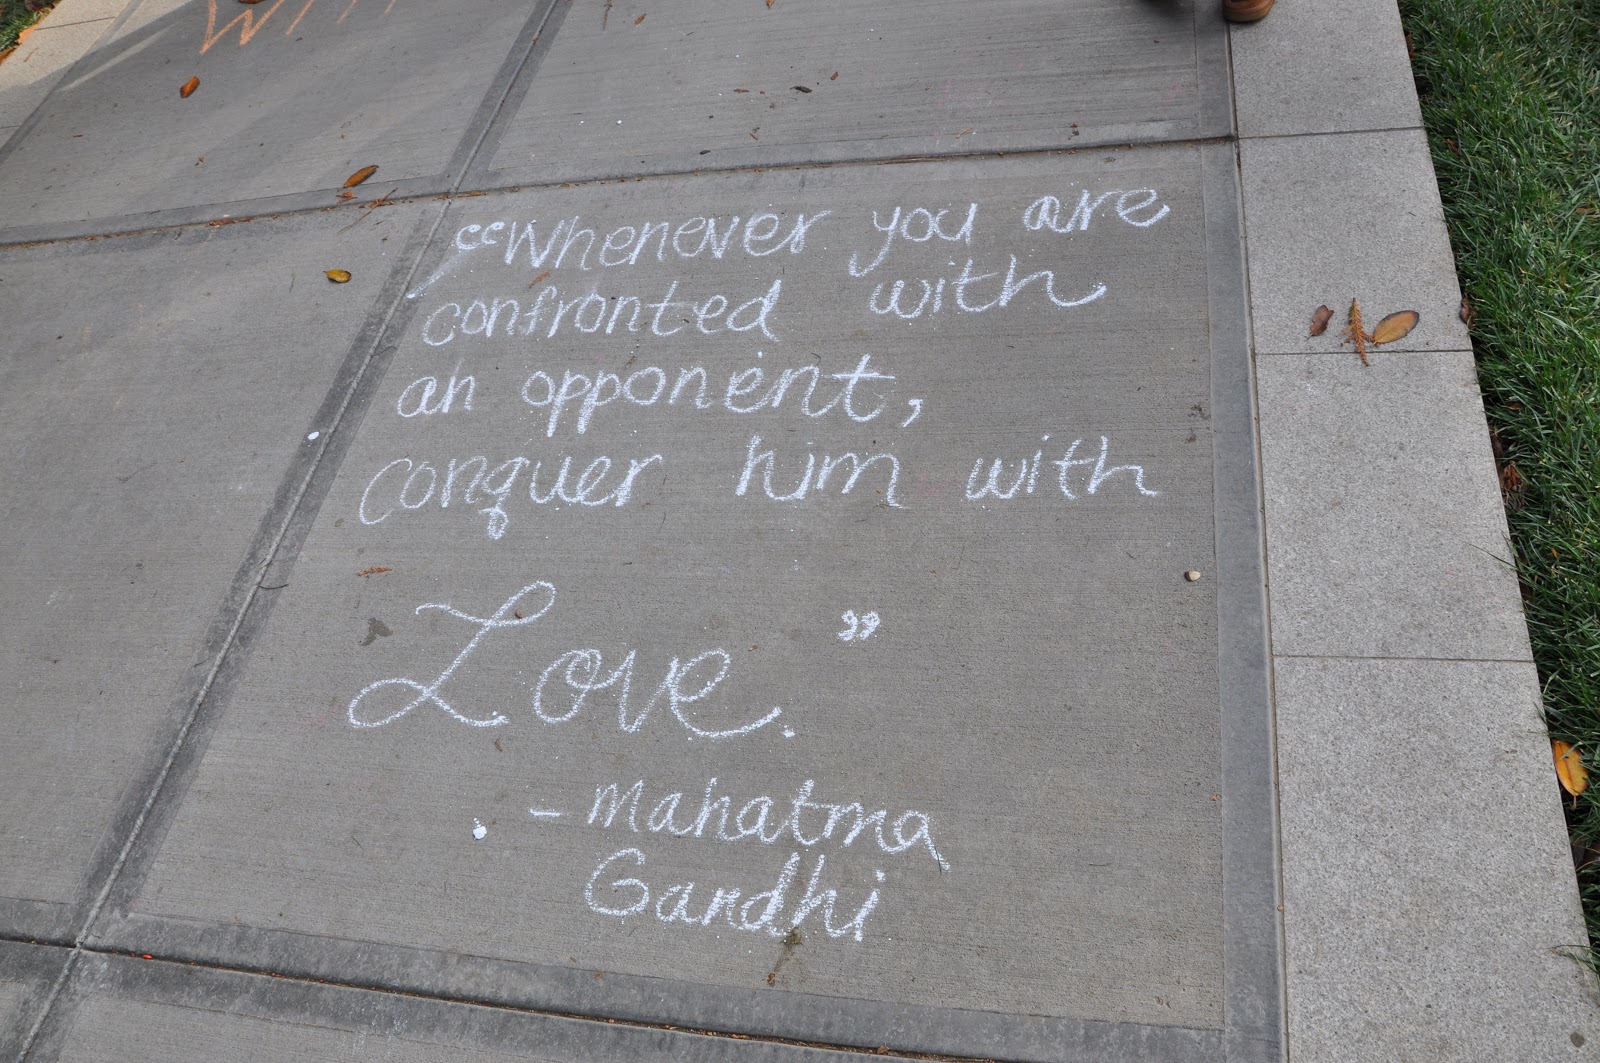 “Whenever you are
confronted with
an opponent,
conquer him with
Love.”
- Mahatma
Gandhi